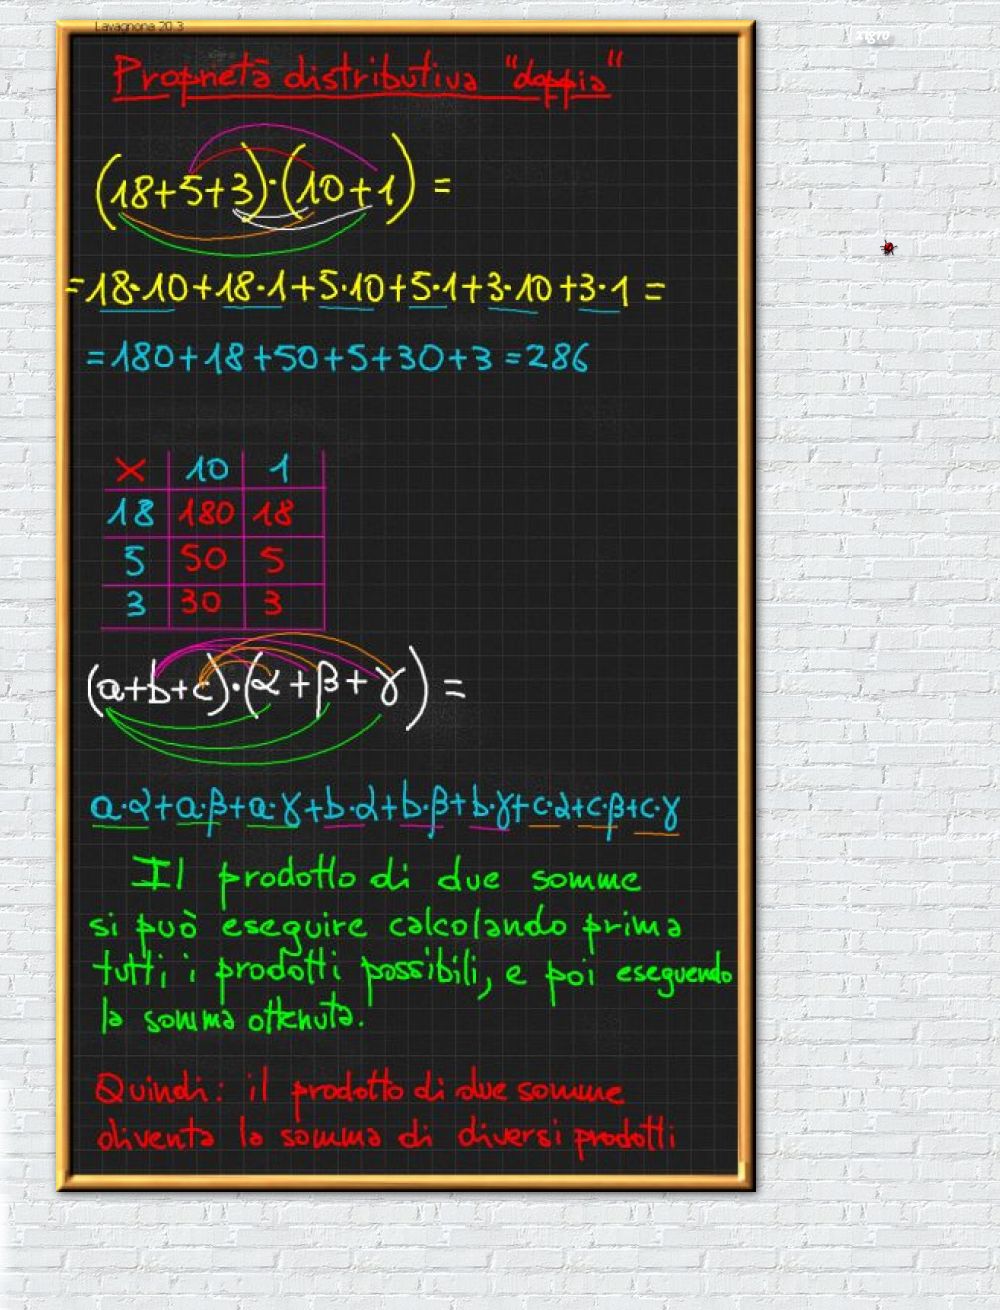 Lavagnona 20.3
xigro
Proprietà distributiva "doppia"
(18+5+3)·(10+1) =
=18·10+18·1+5·10+5·1+3·10+3·1 =
=180+18+50+5+30+3=286
× 10 1
18 180 18
5 50 5
3 30 3
(a+b+c)·(α+β+γ) =
a·α+a·β+a·γ+b·α+b·β+b·γ+c·α+c·β+c·γ
Il prodotto di due somme
si può eseguire calcolando prima
tutti i prodotti possibili, e poi eseguendo
la somma ottenuta.
Quindi: il prodotto di due somme
diventa la somma di diversi prodotti